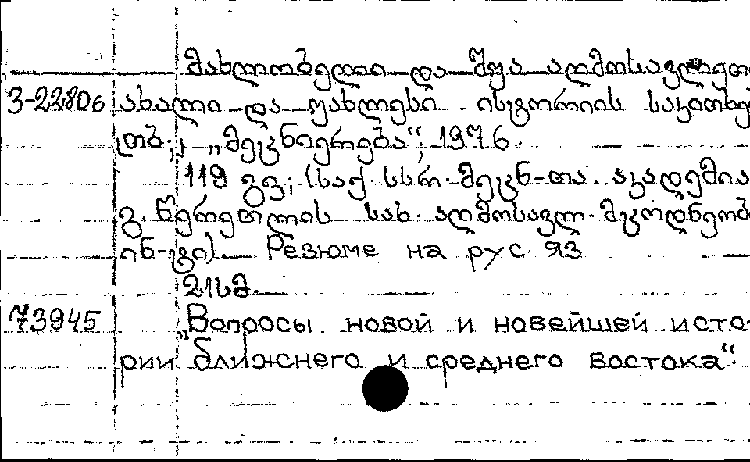 მახლობელი და შუა აღმოსავლეთ
3-22806 ახალი და უახლესი ისტორიის საკითხე
თბ., „მეცნიერება“, 1976.
119 გვ; (საქ. სსრ. მეცნ-თა. აკადემია
გ. წერეთლის სახ. აღმოსავლ. მცოდნეობ
ინ-ტი). Резюме на рус яз
21სმ.
73945 „Вопросы новой и новейшей исто-
рии ближнего и среднего востока“